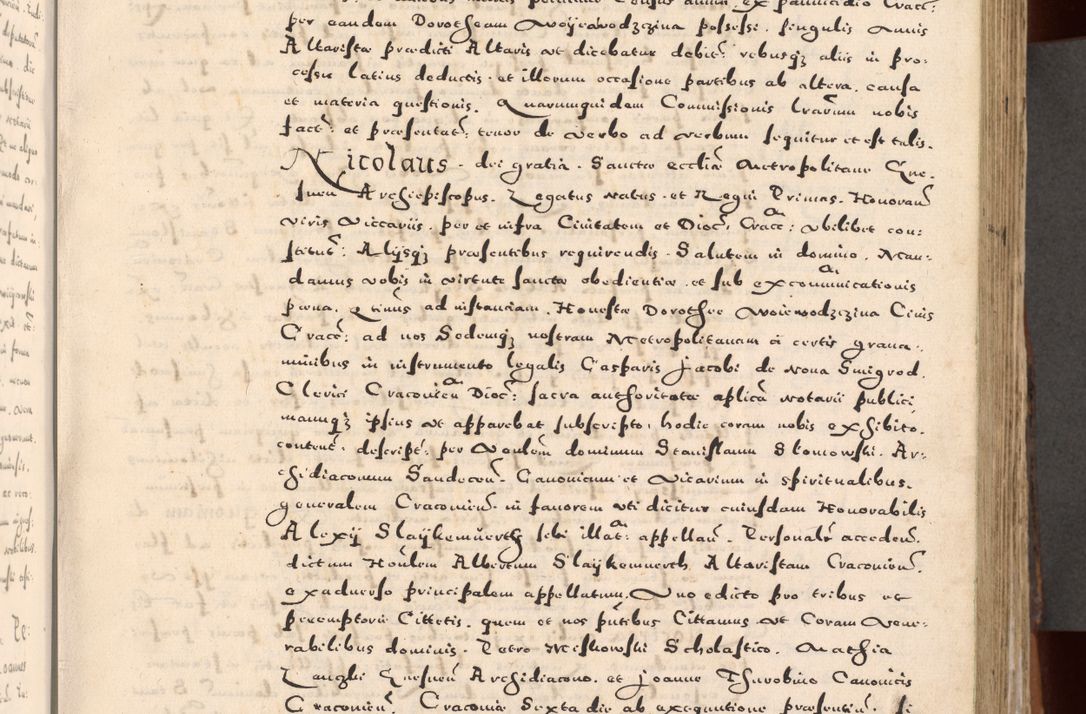 per eandem Dorotheam Woyewodzczina possessi. singulis annis
Altaristæ prædicti Altaris ut dicebatur debit: rebusq3 aliis in pro:
cessu latius deductis. et illorum occasione partibus ab altera. causa
et materia questionis. Quarumquidem Commissionis lrarum nobis
fact: et præsentat: tenor de verbo ad verbum sequitur et est talis.
Nicolaus. dei gratia. Sanctæ eccliæ Metropolitane Gne:
snen Archiepiscopus. Legatus natus. et Regni Primas. Honoran
viris viccariis. per et infra Ciuitatem et Dioc: Cracc: vbilibet con:
stitut: Alysq3 præsentibus requirendis. Salutem in domino. Man:
damus vobis in virtute sanctæ obedientiæ. et sub excommunicationis
pæna. Qtinus ad instantiam. Honestæ Dorothee Woiewodzczina Ciuis
Cracc: ad nos Sedemq3 nostram Metropolitanam à certis graua:
minibus in instrumento legalis Casparis Jacobi de Noua Smigrod.
Clerici Cracouien Dioc: sacra authoritate aplica notarii publici
manuq3 ipsius ut apparebat subscripto. hodie coram nobis exhibito.
content: descript: per Vonlem dominum Stanislaum Slomowski. Ar:
chidiaconum Sandecen. Canonicum et Vicarium in spiritualibus.
generalem Cracouien. in fauorem uti dicitur cuiusdam Honorabilis
Alexij Slaykemuerth sibi illat: appellan. Personalr acceden.
dictum Honlem Albertum Slaykemuerth Altaristam Cracouien.
exaduerso principalem appellatum. Quo edicto pro tribus ac
peremptorie Cittetis. quem et nos pntibus Cittamus ut Coram Vene:
rabilibus dominis. Petro Miskowski Scholastico. Mathia
Lanczki Gnesnen Archidiacono. et Joanne Thurobino Canonicis
Cracouien. Cracouiæ Sexta die ab exequutione præsentium. si